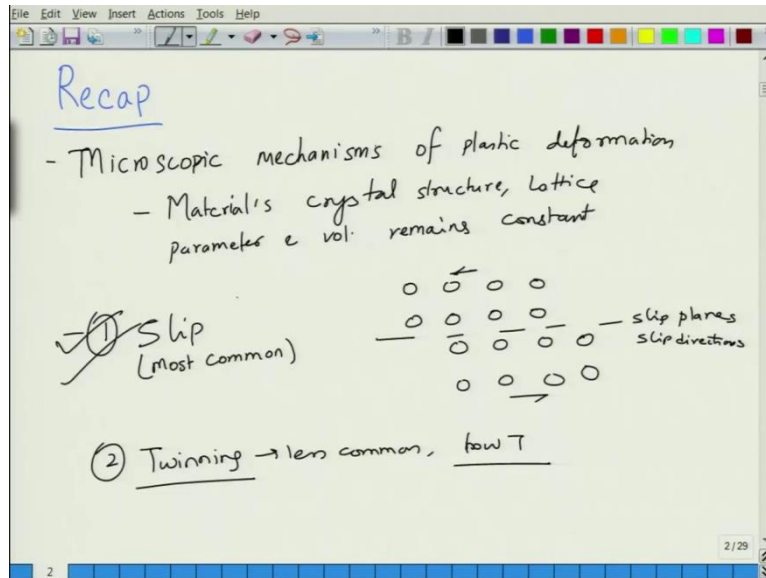 File Edit View Insert Actions Tools Help
Recap
- Microscopic mechanisms of plastic deformation
- Material's crystal structure, Lattice
parameter & vol. remains constant
- ① Slip
(most common)
slip planes
slip directions
② Twinning → less common, low T
2/29
2